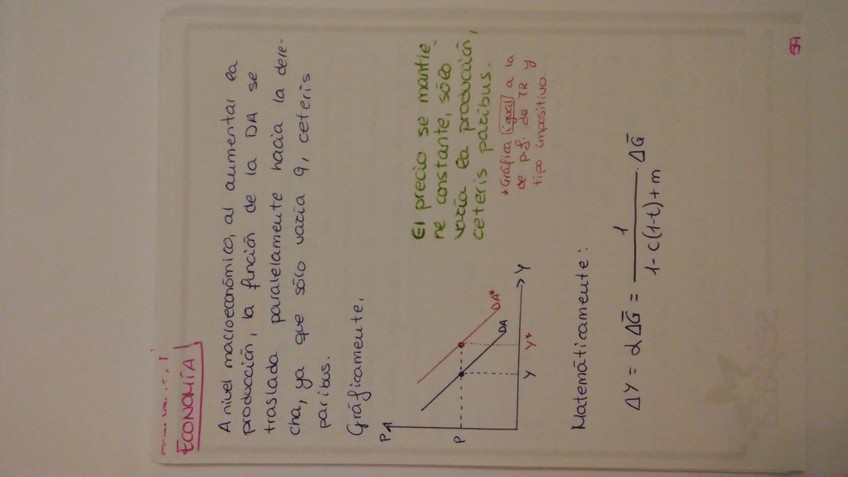 ECONOMÍA
A nivel macroeconómico, al aumentar la
producción, la función de la DA se
traslada paralelamente hacia la dere-
cha, ya que sólo varía G, ceteris
paribus.
Gráficamente,
P
P
DA*
DA
Y
Y*
Y
El precio se mantie-
ne constante, sólo
varía la producción,
ceteris paribus.
*Gráfica igual a la
de p.f. de TR y
tipo impositivo.
Matemáticamente:
ΔY = αΔG̅ = 1 / (1-c(1-t)+m) · ΔG̅
59